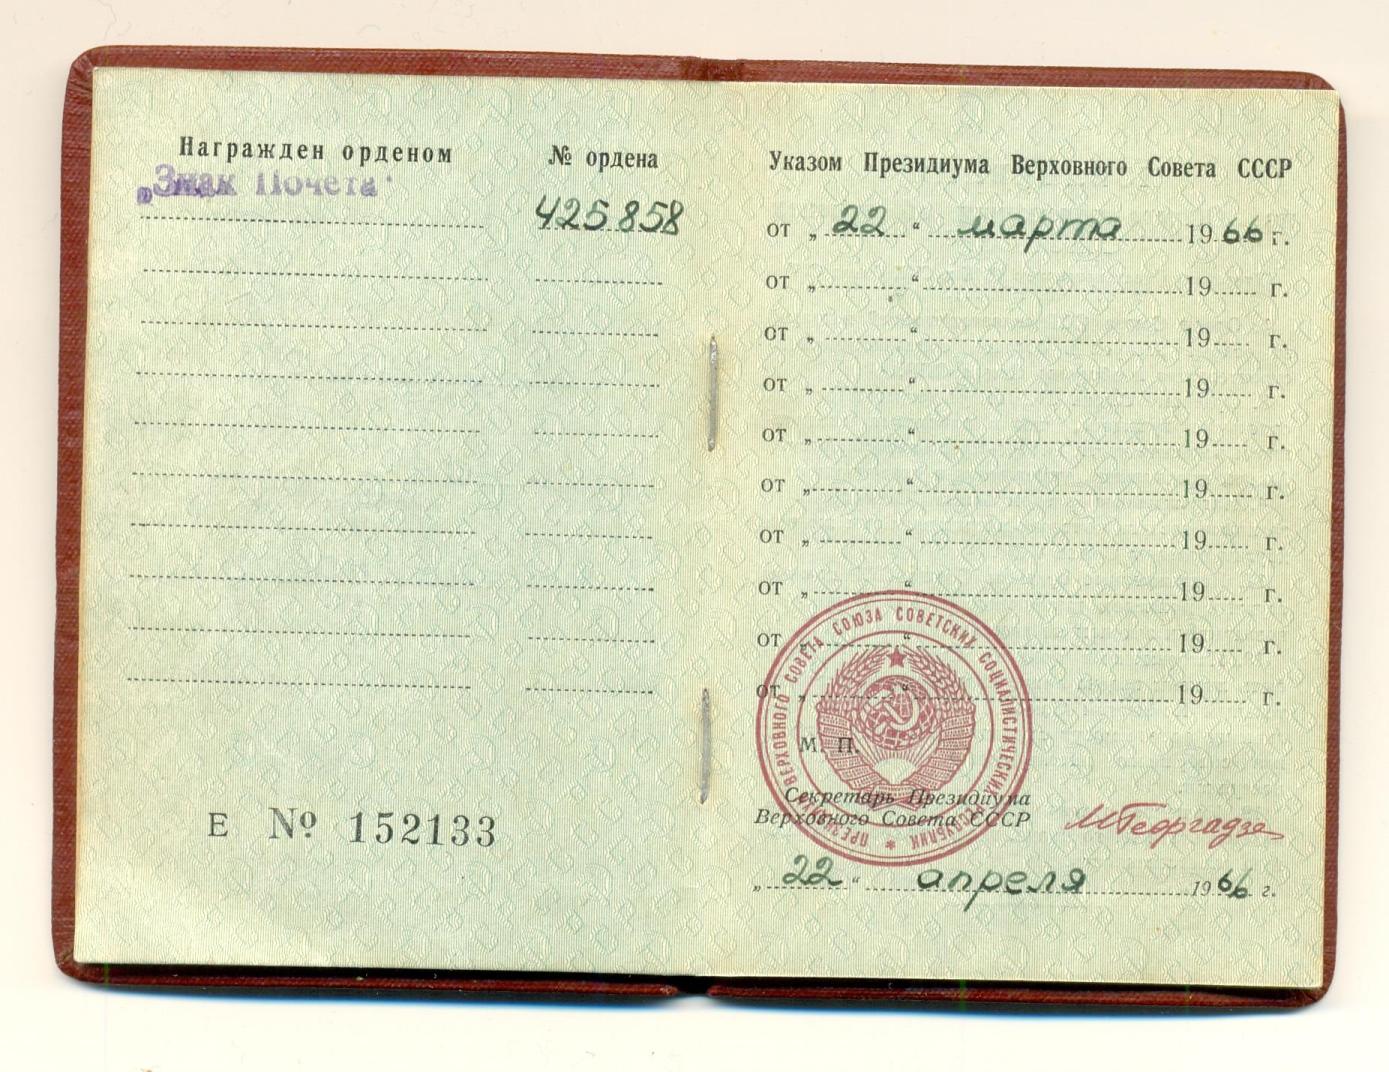 Награжден орденом
„Знак Почета“
№ ордена
425858
Е № 152133
Указом Президиума Верховного Совета СССР
от „ 22 “ марта 1966 г.
от „ “ 19 г.
от „ “ 19 г.
от „ “ 19 г.
от „ “ 19 г.
от „ “ 19 г.
от „ “ 19 г.
от „ “ 19 г.
от „ “ 19 г.
от „ “ 19 г.
ПРЕЗИДИУМ ВЕРХОВНОГО СОВЕТА СОЮЗА СОВЕТСКИХ СОЦИАЛИСТИЧЕСКИХ РЕСПУБЛИК *
М. П.
Секретарь Президиума
Верховного Совета СССР
МГеоргадзе
„ 22 “ апреля 1966 г.